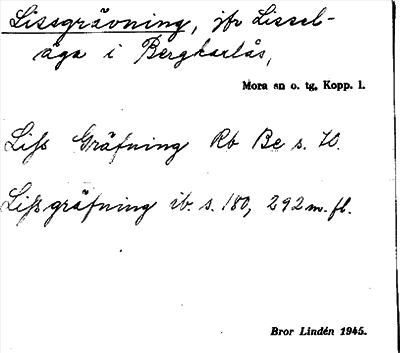 Lissgrävning, jfr Lissel-
äga i Bergkarlås,
Mora sn o. tg, Kopp. l.
Liss Gräfning Rb Be s. 70.
Lissgräfning ib. s. 180, 292 m. fl.
Bror Lindén 1945.